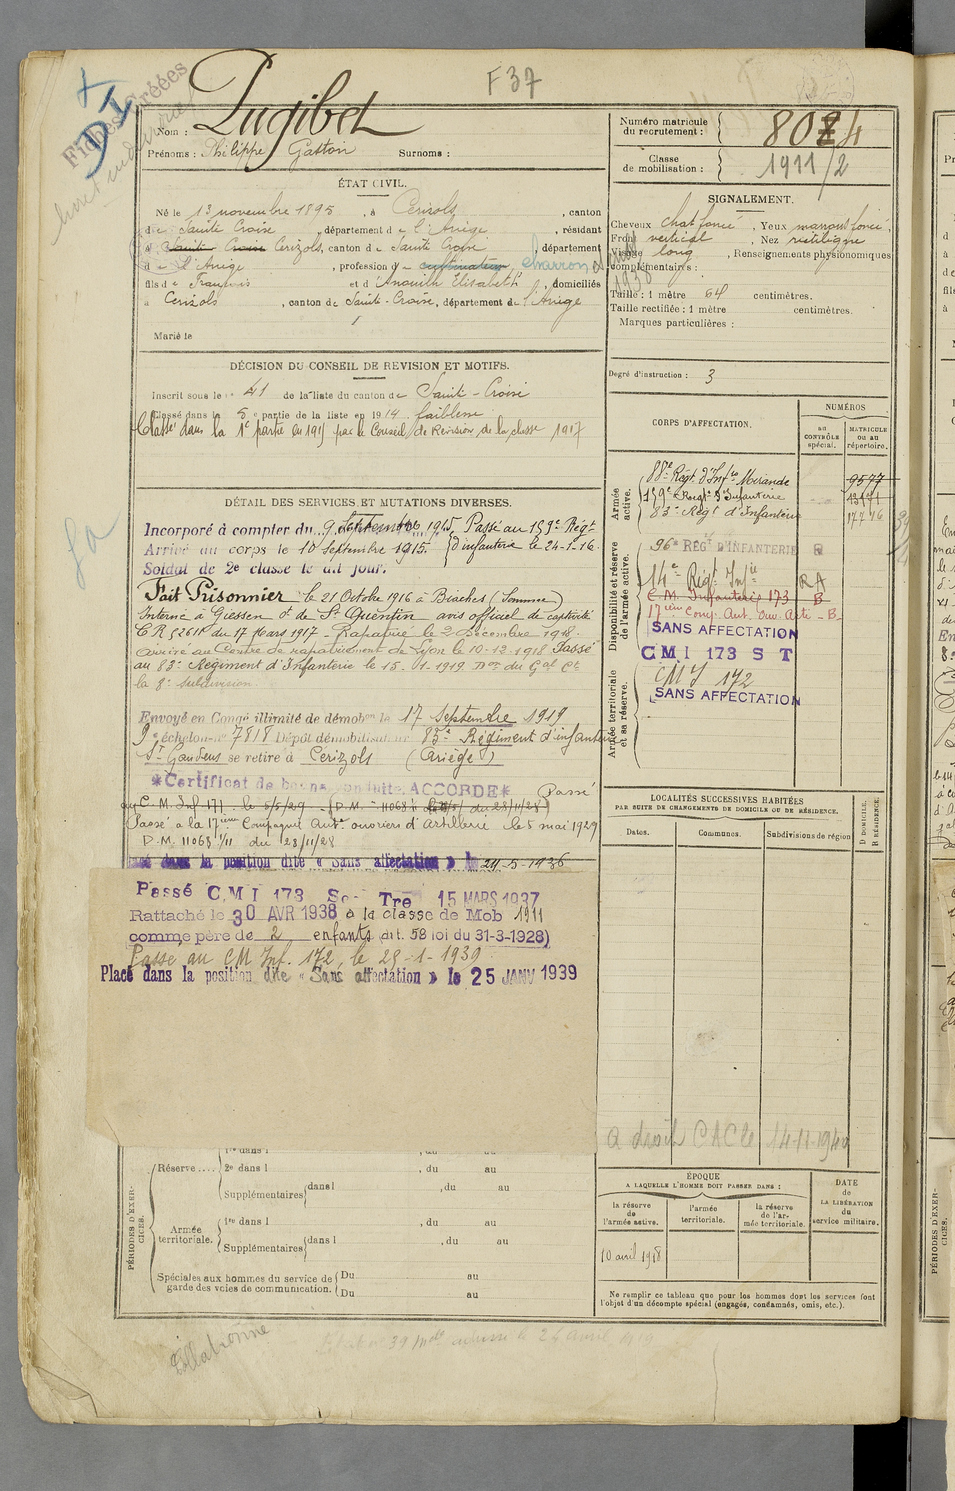 F 37
Nom : Pugibet
Prénoms : Philippe Gaston Surnoms :
Numéro matricule du recrutement : 804
Classe de mobilisation : 1911/2
ÉTAT CIVIL.
Né le 13 novembre 1895, à Cerizols, canton
de Sainte Croix, département de l'Ariège, résidant
à Sainte Croix Cerizols, canton de Sainte Croix, département
de l'Ariège, profession de cultivateur charron
fils de François et d'Anouilh Elisabeth, domiciliés
à Cerizols, canton de Sainte-Croix, département de l'Ariège
Marié le
SIGNALEMENT.
Cheveux chat foncé, Yeux marron foncé,
Front vertical, Nez rectiligne
Visage long, Renseignements physionomiques
complémentaires :
Taille : 1 mètre 64 centimètres.
Taille rectifiée : 1 mètre centimètres.
Marques particulières :
Degré d'instruction : 3
DÉCISION DU CONSEIL DE REVISION ET MOTIFS.
Inscrit sous le n° 41 de la liste du canton de Sainte-Croix
Classé dans la 5e partie de la liste en 1914 faiblesse
Classé dans la 1e partie en 1915 par le Conseil de Revision de la classe 1917
DÉTAIL DES SERVICES ET MUTATIONS DIVERSES.
Incorporé à compter du 9 Septembre 1915 Passé au 159e Régt
Arrivé au corps le 10 Septembre 1915. d'infanterie le 24-1-16.
Soldat de 2e classe le dit jour.
Fait Prisonnier le 21 Octobre 1916 à Biaches (Somme)
Interné à Giessen et de St Quentin avis officiel de captivité
du 17 Mars 1917 - Rapatrié le 2 Décembre 1918.
Arrivé au Centre de rapatriement de Lyon le 10-12-1918 Passé
au 83e Régiment d'Infanterie le 15.01.1919 Don du Gal Ct
la 8e subdivision.
Envoyé en Congé illimité de démobon le 17 Septembre 1919
9e échelon no 7818 Dépôt démobilisateur 83e Régiment d'infanterie
St Gaudens se retire à Cerizols (Ariège)
*Certificat de bonne conduite ACCORDE* Passé
au C.M. Inf 171 le 5/5/29 (D.M. 11068 du 28/11/28)
Passé à la 17ième Compagnie Autme ouvriers d'Artillerie le 5 mai 1929
D.M. 11068 1/11 du 28/11/28
dans la position dite « Sans affectation » le 24-5-1936
Passé CMI 173 Son Tre 15 MARS 1937
Rattaché le 30 AVR 1938 à la classe de Mob 1911
comme père de 2 enfants (art. 58 loi du 31-3-1928)
Passé au CM Inf. 172, le 25-1-1939
Placé dans la position dite « Sans affectation » le 25 JANV 1939
CORPS D'AFFECTATION.
NUMÉROS
au CONTRÔLE spécial.
MATRICULE ou au répertoire.
Armée active.
88e Régt d'Infrie Mirande 9577
159e Régt d'Infanterie 13171
83e Régt d'Infanterie 17776
Disponibilité et réserve de l'armée active.
96e RÉGt D'INFANTERIE R
14e Régt Infie RA
C.M. Infanterie 173 B
17ième Comp. Aut. Ouv. Arti - B
SANS AFFECTATION
CMI 173 S T
Armée territoriale et sa réserve.
CMI 172
SANS AFFECTATION
LOCALITÉS SUCCESSIVES HABITÉES
PAR SUITE DE CHANGEMENTS DE DOMICILE OU DE RÉSIDENCE.
Dates. Communes. Subdivisions de région
D DOMICILE. R RÉSIDENCE.
a droit CAC le 14-11-1940
ÉPOQUE
A LAQUELLE L'HOMME DOIT PASSER DANS :
la réserve de l'armée active.
l'armée territoriale.
la réserve de l'armée territoriale.
DATE de LA LIBÉRATION du service militaire.
10 avril 1918
Ne remplir ce tableau que pour les hommes dont les services font
l'objet d'un décompte spécial (engagés, condamnés, omis, etc.).
PÉRIODES D'EXERCICES.
Réserve....
1re dans l , du au
2e dans l , du au
Supplémentaires dans l , du au
Armée territoriale.
1re dans l , du au
Supplémentaires dans l , du au
Spéciales aux hommes du service de garde des voies de communication.
Du au
Du au